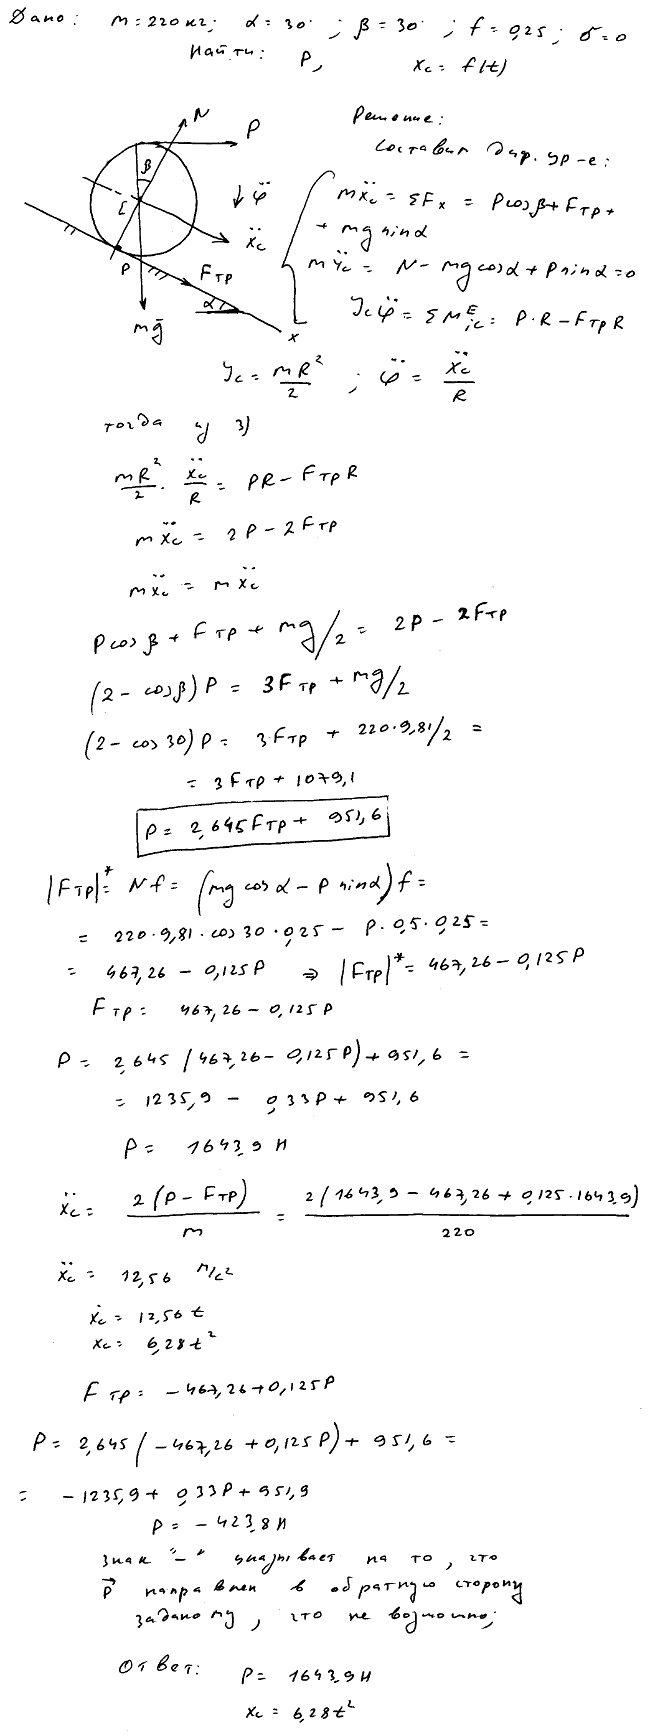 Дано: m = 220 кг; α = 30°; β = 30°; f = 0,25; δ = 0
Найти: P, xc = f(t)
N
P
β
φ̈
ẍc
P
Fтр
α
mḡ
x
Решение:
составим диф. ур-е:
mẍc = ΣFx = P cosβ + Fтр +
+ mg sinα
mÿc = N - mg cosα + P sinα = 0
Jcφ̈ = ΣM^E_ic = P·R - Fтр R
Jc = mR²/2 ; φ̈ = ẍc/R
тогда из 3)
mR²/2 · ẍc/R = PR - Fтр R
mẍc = 2P - 2Fтр
mẍc = mẍc
P cosβ + Fтр + mg/2 = 2P - 2Fтр
(2 - cosβ) P = 3Fтр + mg/2
(2 - cos 30) P = 3Fтр + 220·9,81/2 =
= 3Fтр + 1079,1
P = 2,645Fтр + 951,6
|Fтр|* = Nf = (mg cosα - P sinα) f =
= 220·9,81·cos 30·0,25 - P·0,5·0,25 =
= 467,26 - 0,125P ⇒ |Fтр|* = 467,26 - 0,125P
Fтр = 467,26 - 0,125P
P = 2,645 (467,26 - 0,125P) + 951,6 =
= 1235,9 - 0,33P + 951,6
P = 1643,9 Н
ẍc = 2(P - Fтр)/m = 2(1643,9 - 467,26 + 0,125·1643,9)/220
ẍc = 12,56 м/с²
ẋc = 12,56 t
xc = 6,28 t²
Fтр = -467,26 + 0,125P
P = 2,645 (-467,26 + 0,125P) + 951,6 =
= -1235,9 + 0,33P + 951,9
P = -423,8 Н
знак "-" указывает на то, что
P⃗ направлен в обратную сторону
заданому, что не возможно;
Ответ: P = 1643,9 Н
xc = 6,28 t²